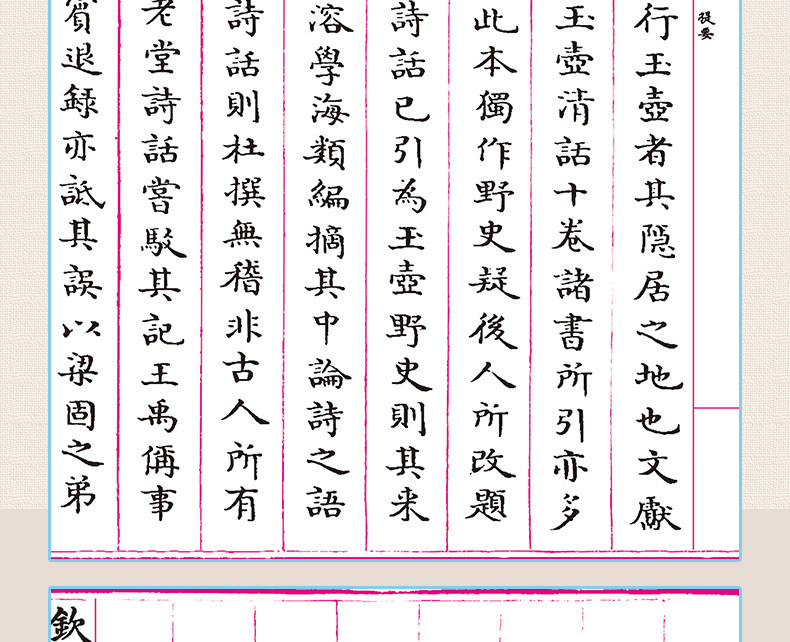 提要
行玉壺者其隠居之地也文獻
玉壺清話十卷諸書所引亦多
此本獨作野史疑後人所改題
詩話已引為玉壺野史則其来
溶學海類編摘其中論詩之語
詩話則杜撰無稽非古人所有
老堂詩話嘗駁其記王禹偁事
賓退録亦詆其誤以梁固之弟
欽